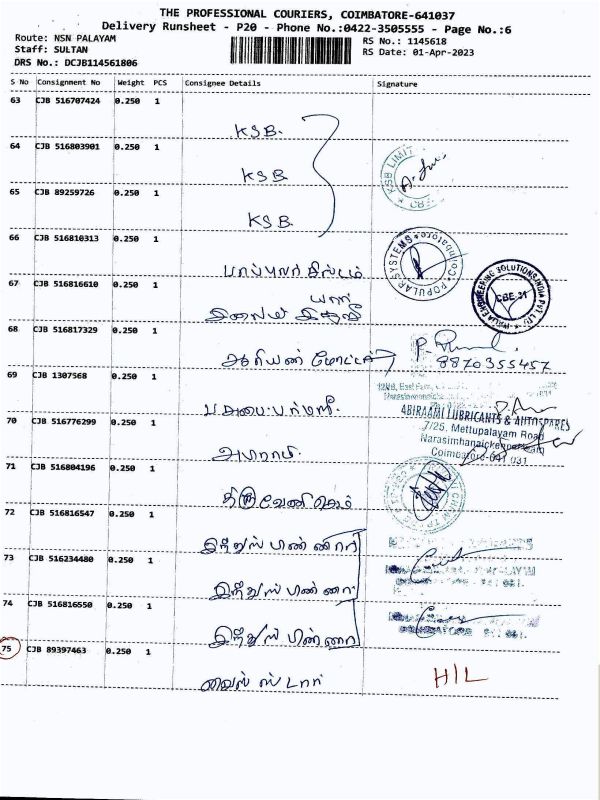 THE PROFESSIONAL COURIERS, COIMBATORE-641037
Delivery Runsheet - P20 - Phone No.:0422-3505555 - Page No.:6
Route: NSN PALAYAM
RS No.: 1145618
Staff: SULTAN
RS Date: 01-Apr-2023
DRS No.: DCJB114561806
S No Consignment No Weight PCS Consignee Details Signature
63 CJB 516707424 0.250 1
KSB.
64 CJB 516803901 0.250 1
KSB
KSB LIMIT
65 CJB 89259726 0.250 1
KSB
66 CJB 516810313 0.250 1
பாப்புலர் சிஸ்டம்
POPULAR SYSTEMS * Coimbatore
67 CJB 516816610 0.250 1
ENGINEERING SOLUTIONS INDIA PVT LTD
CBE-31
68 CJB 516817329 0.250 1
ஆரியன் மோட்டார்
8870355457
69 CJB 1307568 0.250 1
ABIRAAMI LUBRICANTS & AUTOSPARES
7/25, Mettupalayam Road
Narasimhanaickenpalayam
Coimbatore-641 031
70 CJB 516776299 0.250 1
அபிராமி
71 CJB 516804196 0.250 1
திருவேணி கெம்
72 CJB 516816547 0.250 1
இந்துஸ் பண்ணாரி
73 CJB 516234480 0.250 1
இந்துஸ் பண்ணாரி
74 CJB 516816550 0.250 1
இந்துஸ் பண்ணாரி
75 CJB 89397463 0.250 1
வைஸ் ஸ்டார்
H/L